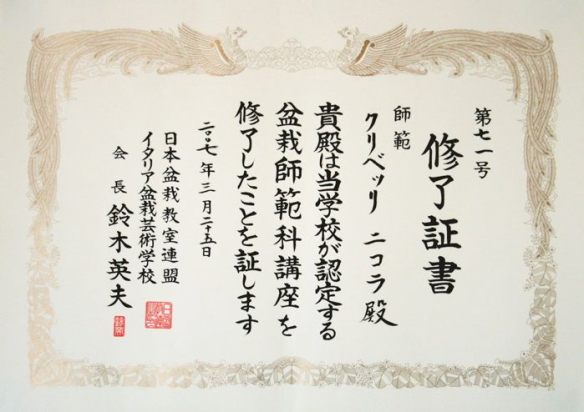 第七一号
修了証書
師範
クリベッリ ニコラ 殿
貴殿は当学校が認定する
盆栽師範科講座を
修了したことを証します
二〇〇七年三月二十五日
日本盆栽教室連盟
イタリア盆栽芸術学校
会長 鈴木英夫